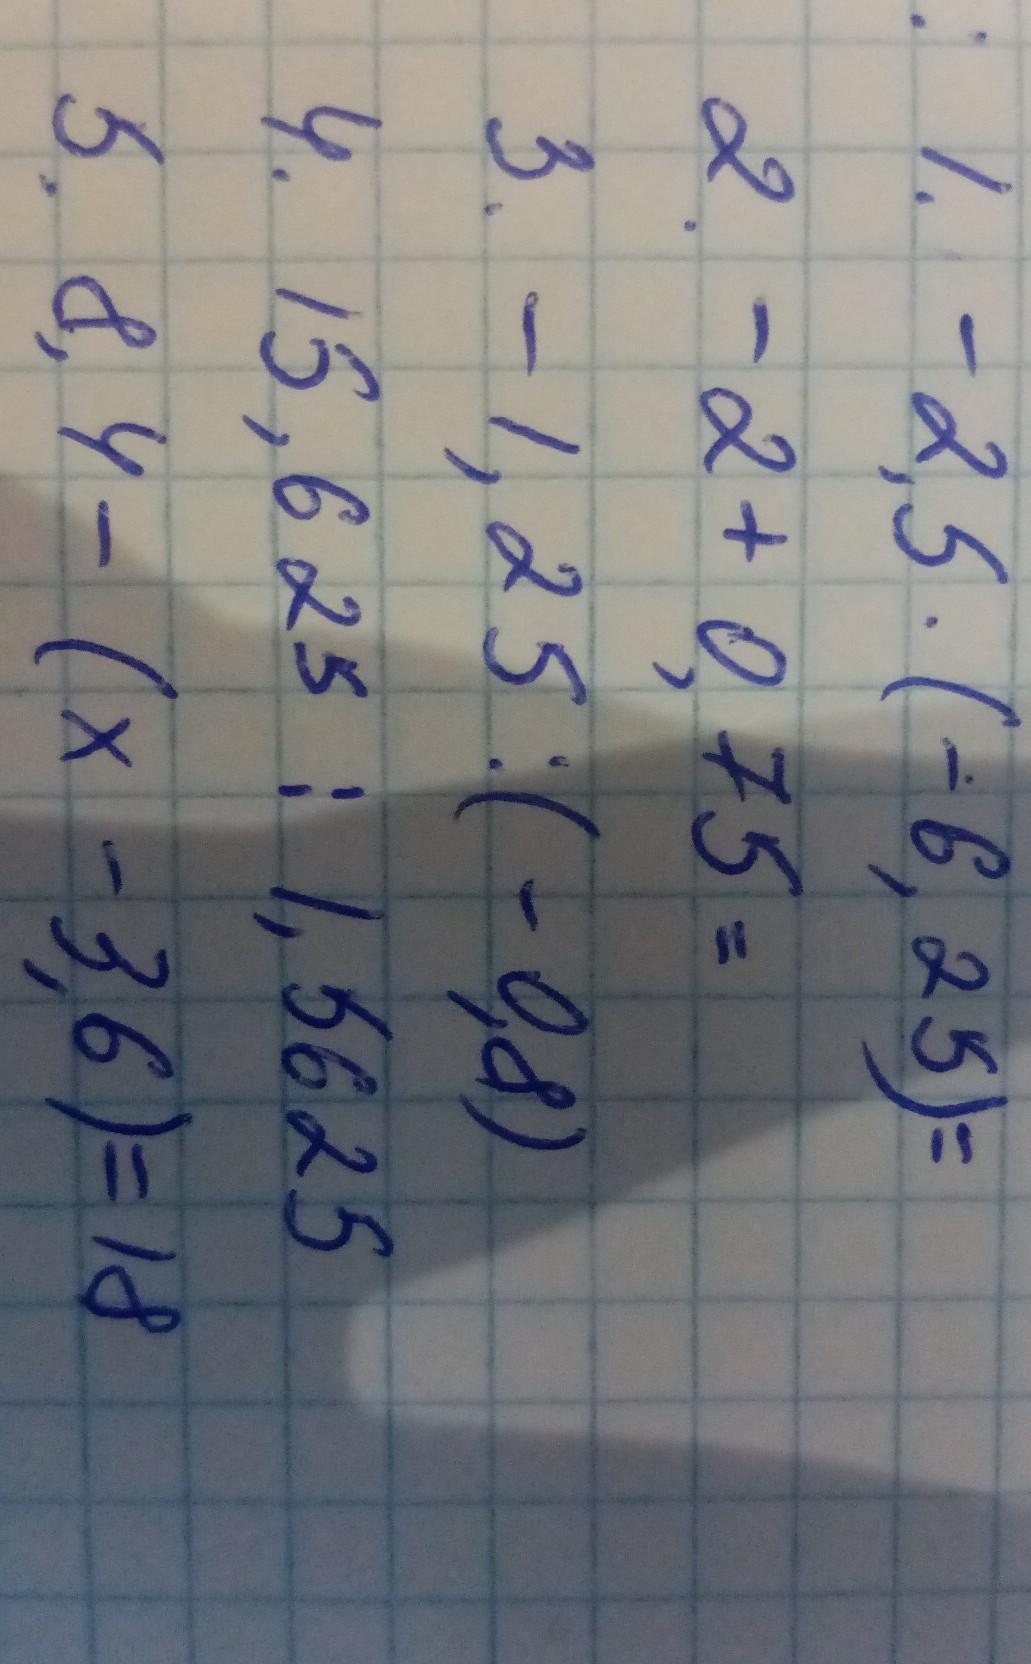 1. -2,5 · (-6,25)=
2. -2+0,75=
3. -1,25:(-0,8)
4. 15,625 : 1,5625
5. 8,4-(x-3,6)=18